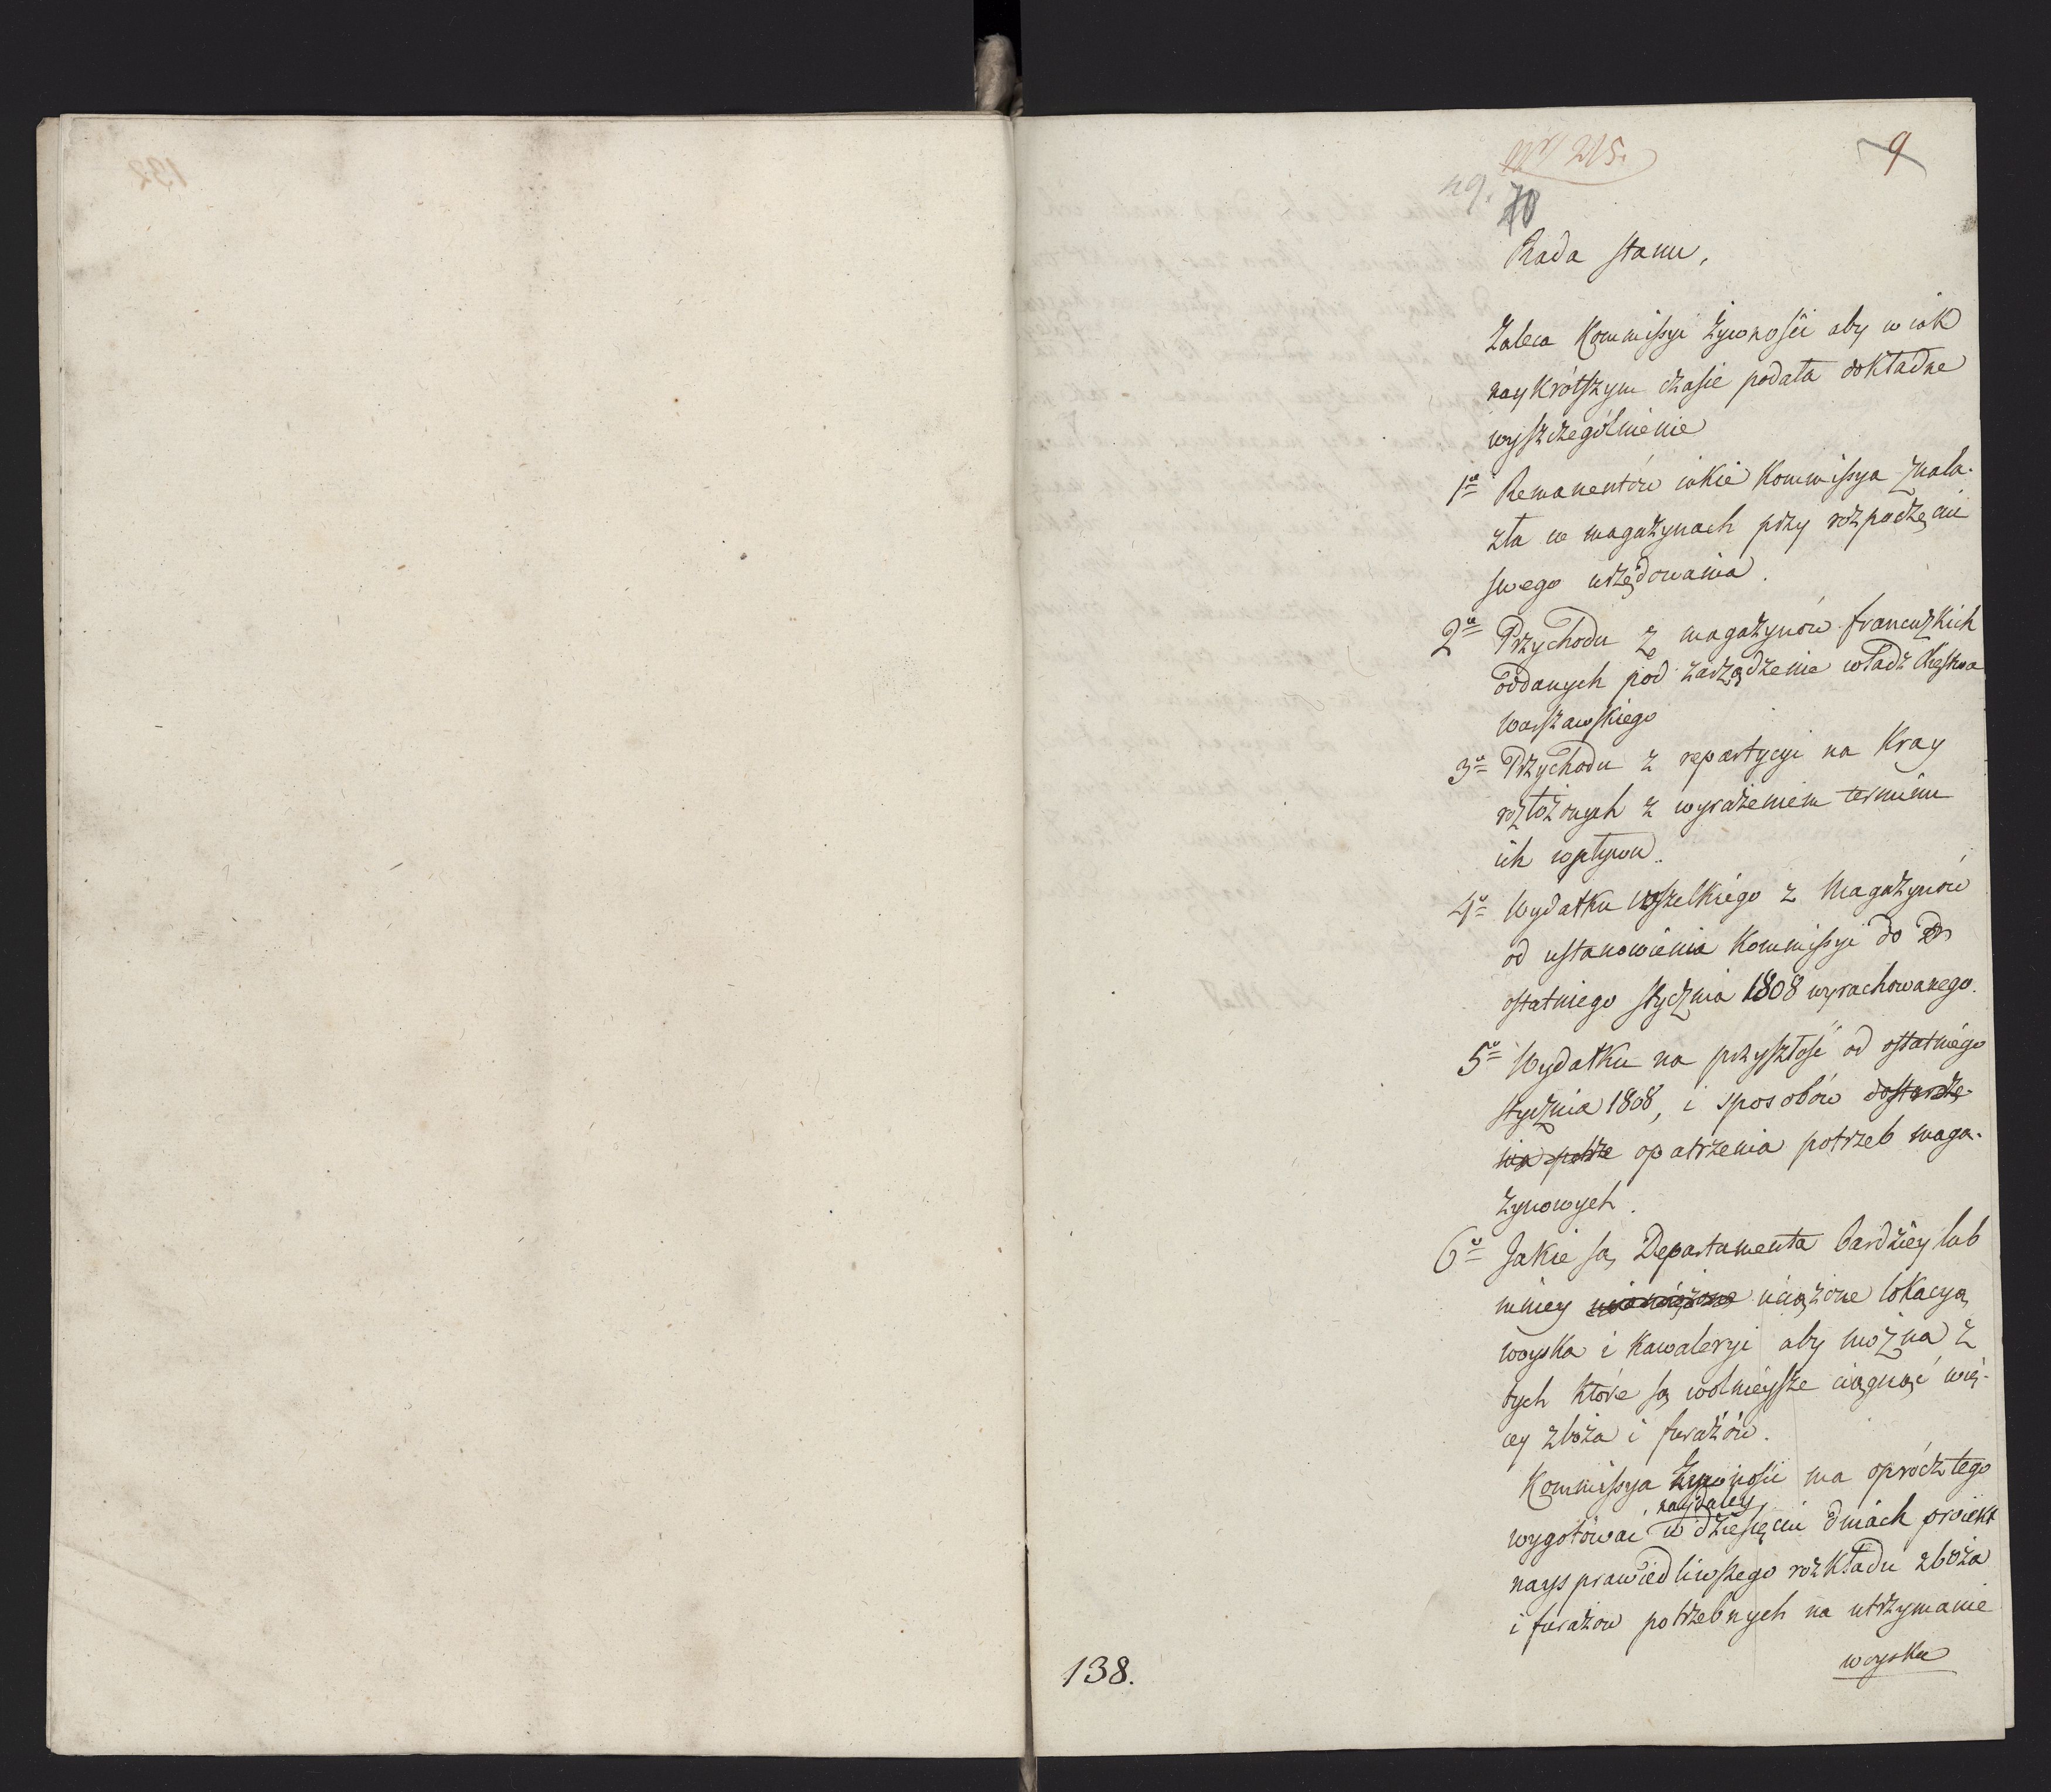 Nr 215.
9
49.
70
Rada stanu,
Zaleca Kommissyi żywności aby w iak
naykrótszym czasie podała dokładne
wyszczególnienie
1o Remanentów iakie Kommissya znala-
zła w magazynach przy rozpoczęciu
swego urzędowania.
2o Przychodu z magazynów francuzkich
oddanych pod zarządzenie władz Xięstwa
Warszawskiego
3o Przychodu z repartycyi na Kray
rozłożonych z wyrażeniem terminu
ich wpływu.
4o Wydatku wszelkiego z Magazynów
od ustanowienia Kommissyi do
ostatniego stycznia 1808 wyrachowanego.
5o Wydatku na przyszłość od ostatniego
stycznia 1808, i sposobów dostarcze-
nia potrze opatrzenia potrzeb maga-
zynowych.
6o Jakie są Departamenta bardziey lub
mniey uciążone lokacyą
woyska i kawaleryi aby można z
tych które są wolnieysze ciągnąć wię-
cey zboża i furażów.
Kommissya Żywności ma oprócz tego
wygotować naydaley w dziesięciu dniach proiekt
naysprawiedliwszego rozkładu zboża
i furażow potrzebnych na utrzymanie
woyska
138.
132